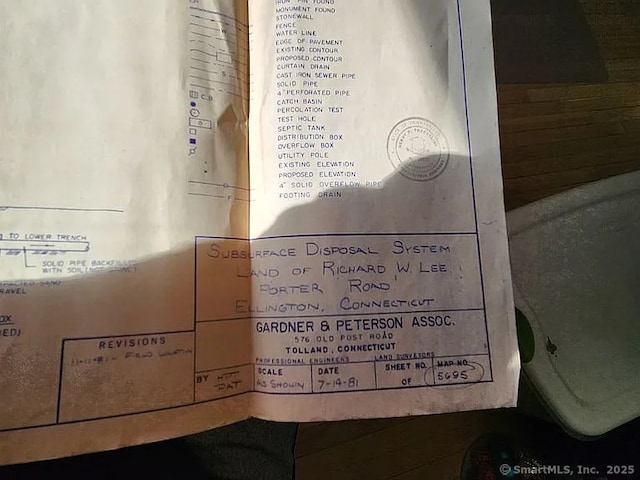 IRON PIN FOUND
MONUMENT FOUND
STONEWALL
FENCE
WATER LINE
EDGE OF PAVEMENT
EXISTING CONTOUR
PROPOSED CONTOUR
CURTAIN DRAIN
CAST IRON SEWER PIPE
SOLID PIPE
4" PERFORATED PIPE
C.B.
CATCH BASIN
PERCOLATION TEST
TEST HOLE
SEPTIC TANK
DISTRIBUTION BOX
OVERFLOW BOX
UTILITY POLE
EXISTING ELEVATION
PROPOSED ELEVATION
4" SOLID OVERFLOW PIPE
FOOTING DRAIN
TO LOWER TRENCH
SOLID PIPE BACKFILLED
WITH SOIL
SUBSURFACE DISPOSAL SYSTEM
LAND OF RICHARD W. LEE
PORTER ROAD
ELLINGTON, CONNECTICUT
GARDNER & PETERSON ASSOC.
576 OLD POST ROAD
TOLLAND, CONNECTICUT
PROFESSIONAL ENGINEERS LAND SURVEYORS
REVISIONS
BY
SCALE
AS SHOWN
DATE
7-14-81
SHEET NO.
OF
MAP NO.
5695
©SmartMLS, Inc. 2025